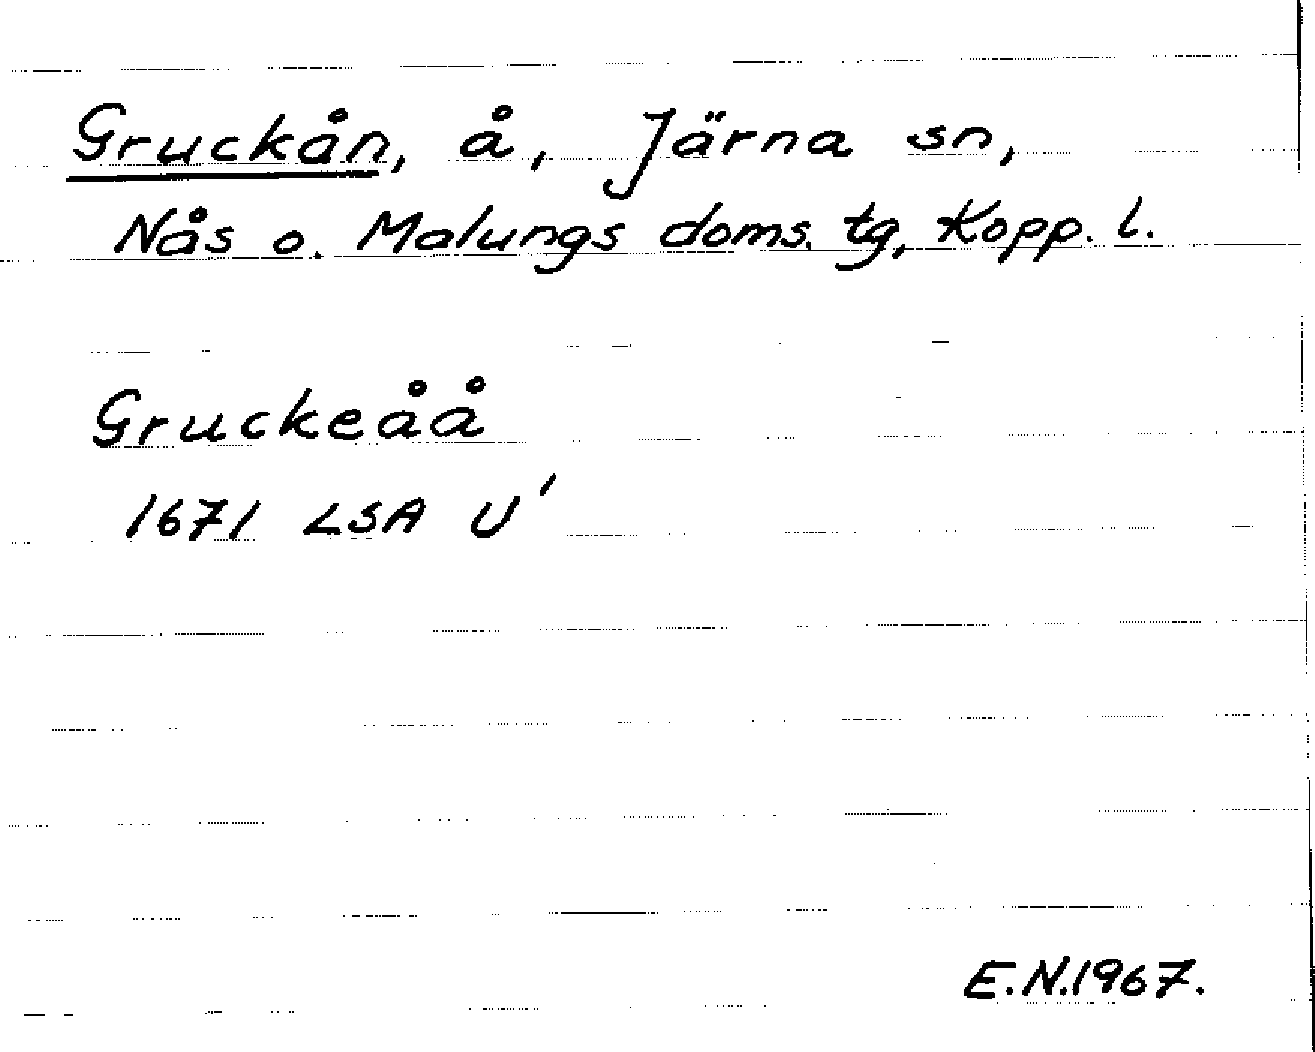 Gruckån, å, Järna sn,
Nås o. Malungs doms. tg, Kopp. l.
Gruckeåå
1671 LSA U'
E.N.1967.